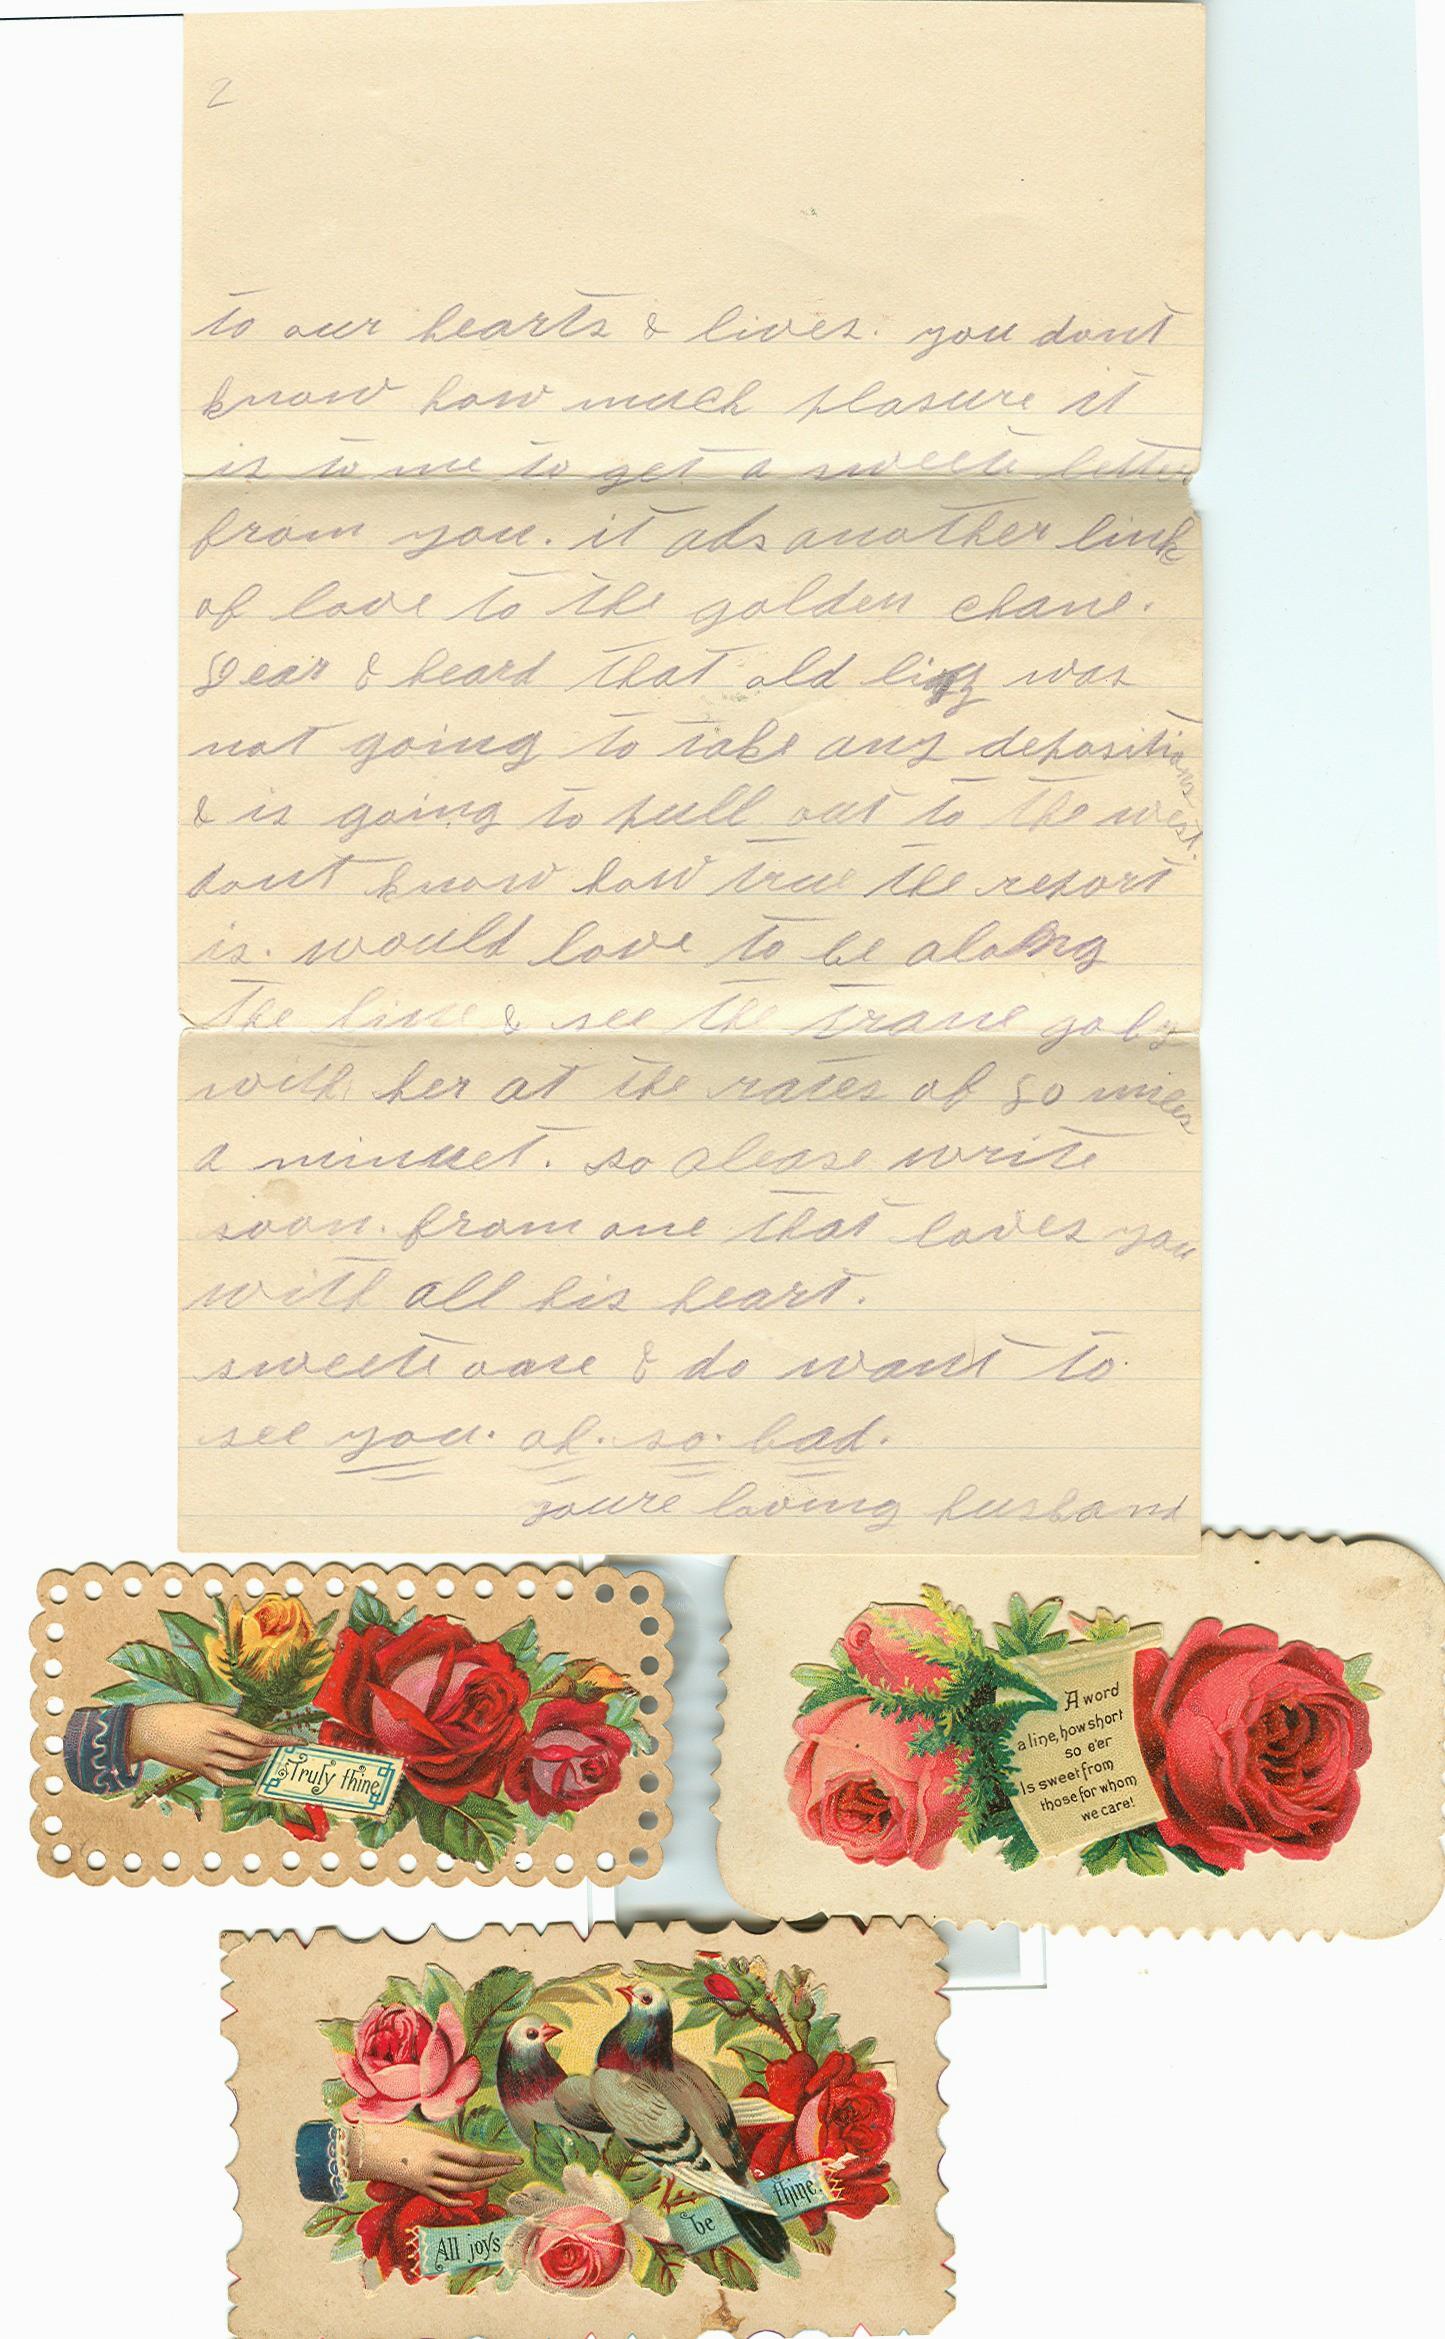 2
to our hearts & lives. you dont
know how much plasure it
is to me to get a sweete letter
from you. it ads another link
of love to the golden chane.
Dear I heard that old was
not going to take any depositions
& is going to pull out to the west.
dont know how true the report
is. would love to be along
the line & see the trane go by
with her at the rates of 80 miles
a minuet. so please write
soon. from one that loves you
with all his heart.
sweete one I do want to
see you. oh. so. bad.
youre loving husband
Truly thine
A word
a line, how short
so e'er
Is sweet from
those for whom
we care!
All joys be thine.